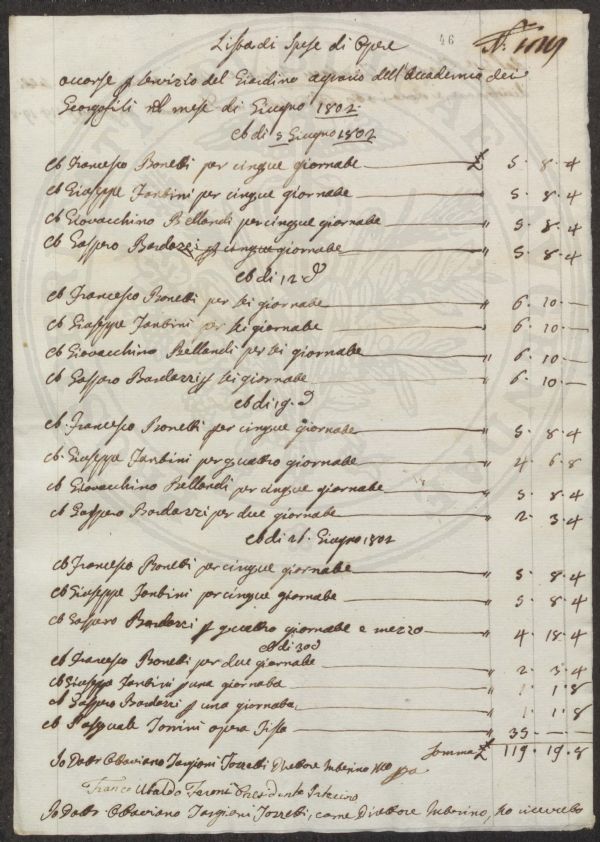 46
Lista di Spese di Opere
occorse p servizio del Giardino agrario dell'Accademia dei
Georgofili nel mese di Giugno 1802.
A di 5 Giugno 1802
A Francesco Bonetti per cinque giornate £ 5. 8. 4
A Giuseppe Fantini per cinque giornate " 5. 8. 4
A Giovacchino Bellandi per cinque giornate " 5. 8. 4
A Gaspero Bardazzi p cinque giornate " 5. 8. 4
A di 12. do
A Francesco Bonetti per sei giornate " 6. 10. —
A Giuseppe Fantini per sei giornate " 6. 10. —
A Giovacchino Bellandi per sei giornate " 6. 10. —
A Gasparo Bardazzi p sei giornate " 6. 10. —
A di 19. do
A Francesco Bonetti per cinque giornate " 5. 8. 4
A Giuseppe Fantini per quattro giornate " 4. 6. 8
A Giovacchino Bellandi per cinque giornate " 5. 8. 4
A Gaspero Bardazzi per due giornate " 2. 3. 4
A di 26. Giugno 1802
A Francesco Bonetti per cinque giornate " 5. 8. 4
A Giuseppe Fantini per cinque giornate " 5. 8. 4
A Gaspero Bardazzi p quattro giornate e mezzo " 4. 18. 4
A di 30 do
A Francesco Bonetti per due giornate " 2. 3. 4
A Giuseppe Fantini p una giornata " 1. 1. 8
A Gaspero Bardazzi p una giornata " 1. 1. 8
A Pasquale Tonini opera fissa " 35. — —
Somma £ 119. 19. 8
Io Dottr Ottaviano Targioni Tozzetti Direttore Interino
Franco Ubaldo Feroni Presidente Interino
Io Dottr Ottaviano Targioni Tozzetti, come Direttore Interino, ho ricevuto